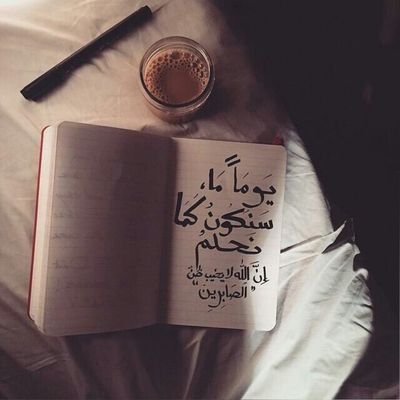 يَوماً مَا،
سَنَكُونُ كَمَا
نَحلمْ
إنَّ اللَّه لا يخيب ظنَّ
"الصَابِرِينْ"